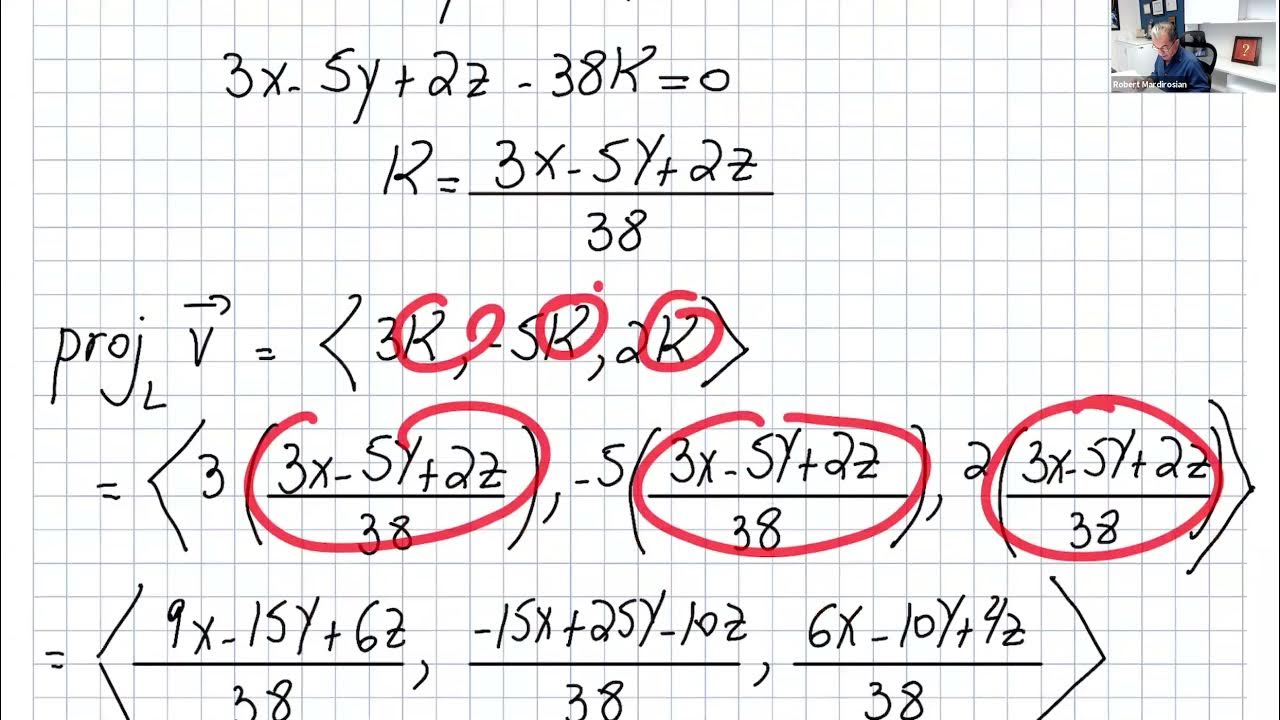 3x - 5y + 2z - 38K = 0
K = 3x - 5y + 2z
38
proj_L v⃗ = ⟨3K, -5K, 2K⟩
= ⟨3 (3x - 5y + 2z / 38), -5 (3x - 5y + 2z / 38), 2 (3x - 5y + 2z / 38)⟩
= ⟨9x - 15y + 6z / 38, -15x + 25y - 10z / 38, 6x - 10y + 4z / 38⟩
?
Robert Mardirosian